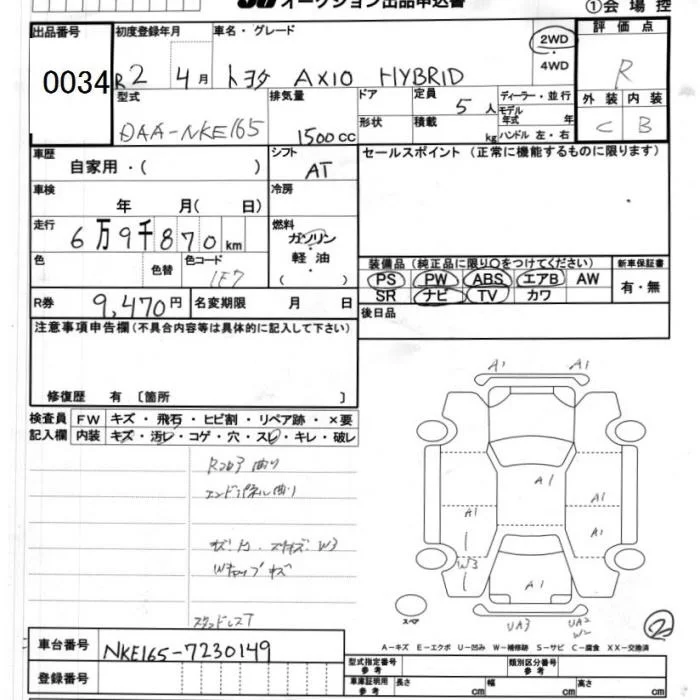 オークション出品申込書
①会場控
出品番号
0034
初度登録年月
R2 4月
車名・グレード
トヨタ AXIO HYBRID
2WD
・
4WD
評価点
R
外装 内装
C B
型式
DAA-NKE165
排気量
1500cc
ドア
形状
定員 5人
積載 kg
ディーラー・並行
モデル年式 年
ハンドル 左・右
車歴
自家用・( )
シフト
AT
セールスポイント (正常に機能するものに限ります)
車検
年 月( 日)
冷房
走行
6万9千870km
燃料
ガソリン
軽油
( )
色
色替
色コード
1E7
装備品 (純正品に限り○をつけてください)
PS PW ABS エアB AW
SR ナビ TV カワ
新車保証書
有・無
R券
9,470円
名変期限 月 日
後日品
注意事項申告欄 (不具合内容等は具体的に記入して下さい)
修復歴 有 〔箇所 〕
検査員
記入欄
FW キズ・飛石・ヒビ割・リペア跡・×要
内装 キズ・汚レ・コゲ・穴・スレ・キレ・破レ
Rコア曲り
エンドパネル曲り
W3
Wキャップキズ
スタッドレスT
A1 A1
A1
A1
A1
A1
W3
A1
UA3
UA2
W2
スペア
②
A-キズ E-エクボ U-凹み W-補修跡 S-サビ C-腐食 XX-交換済
車台番号
NKE165-7230149
登録番号
型式指定番号
参考
類別区分番号
参考
車庫証明用
参考
長さ cm
幅 cm
高さ cm